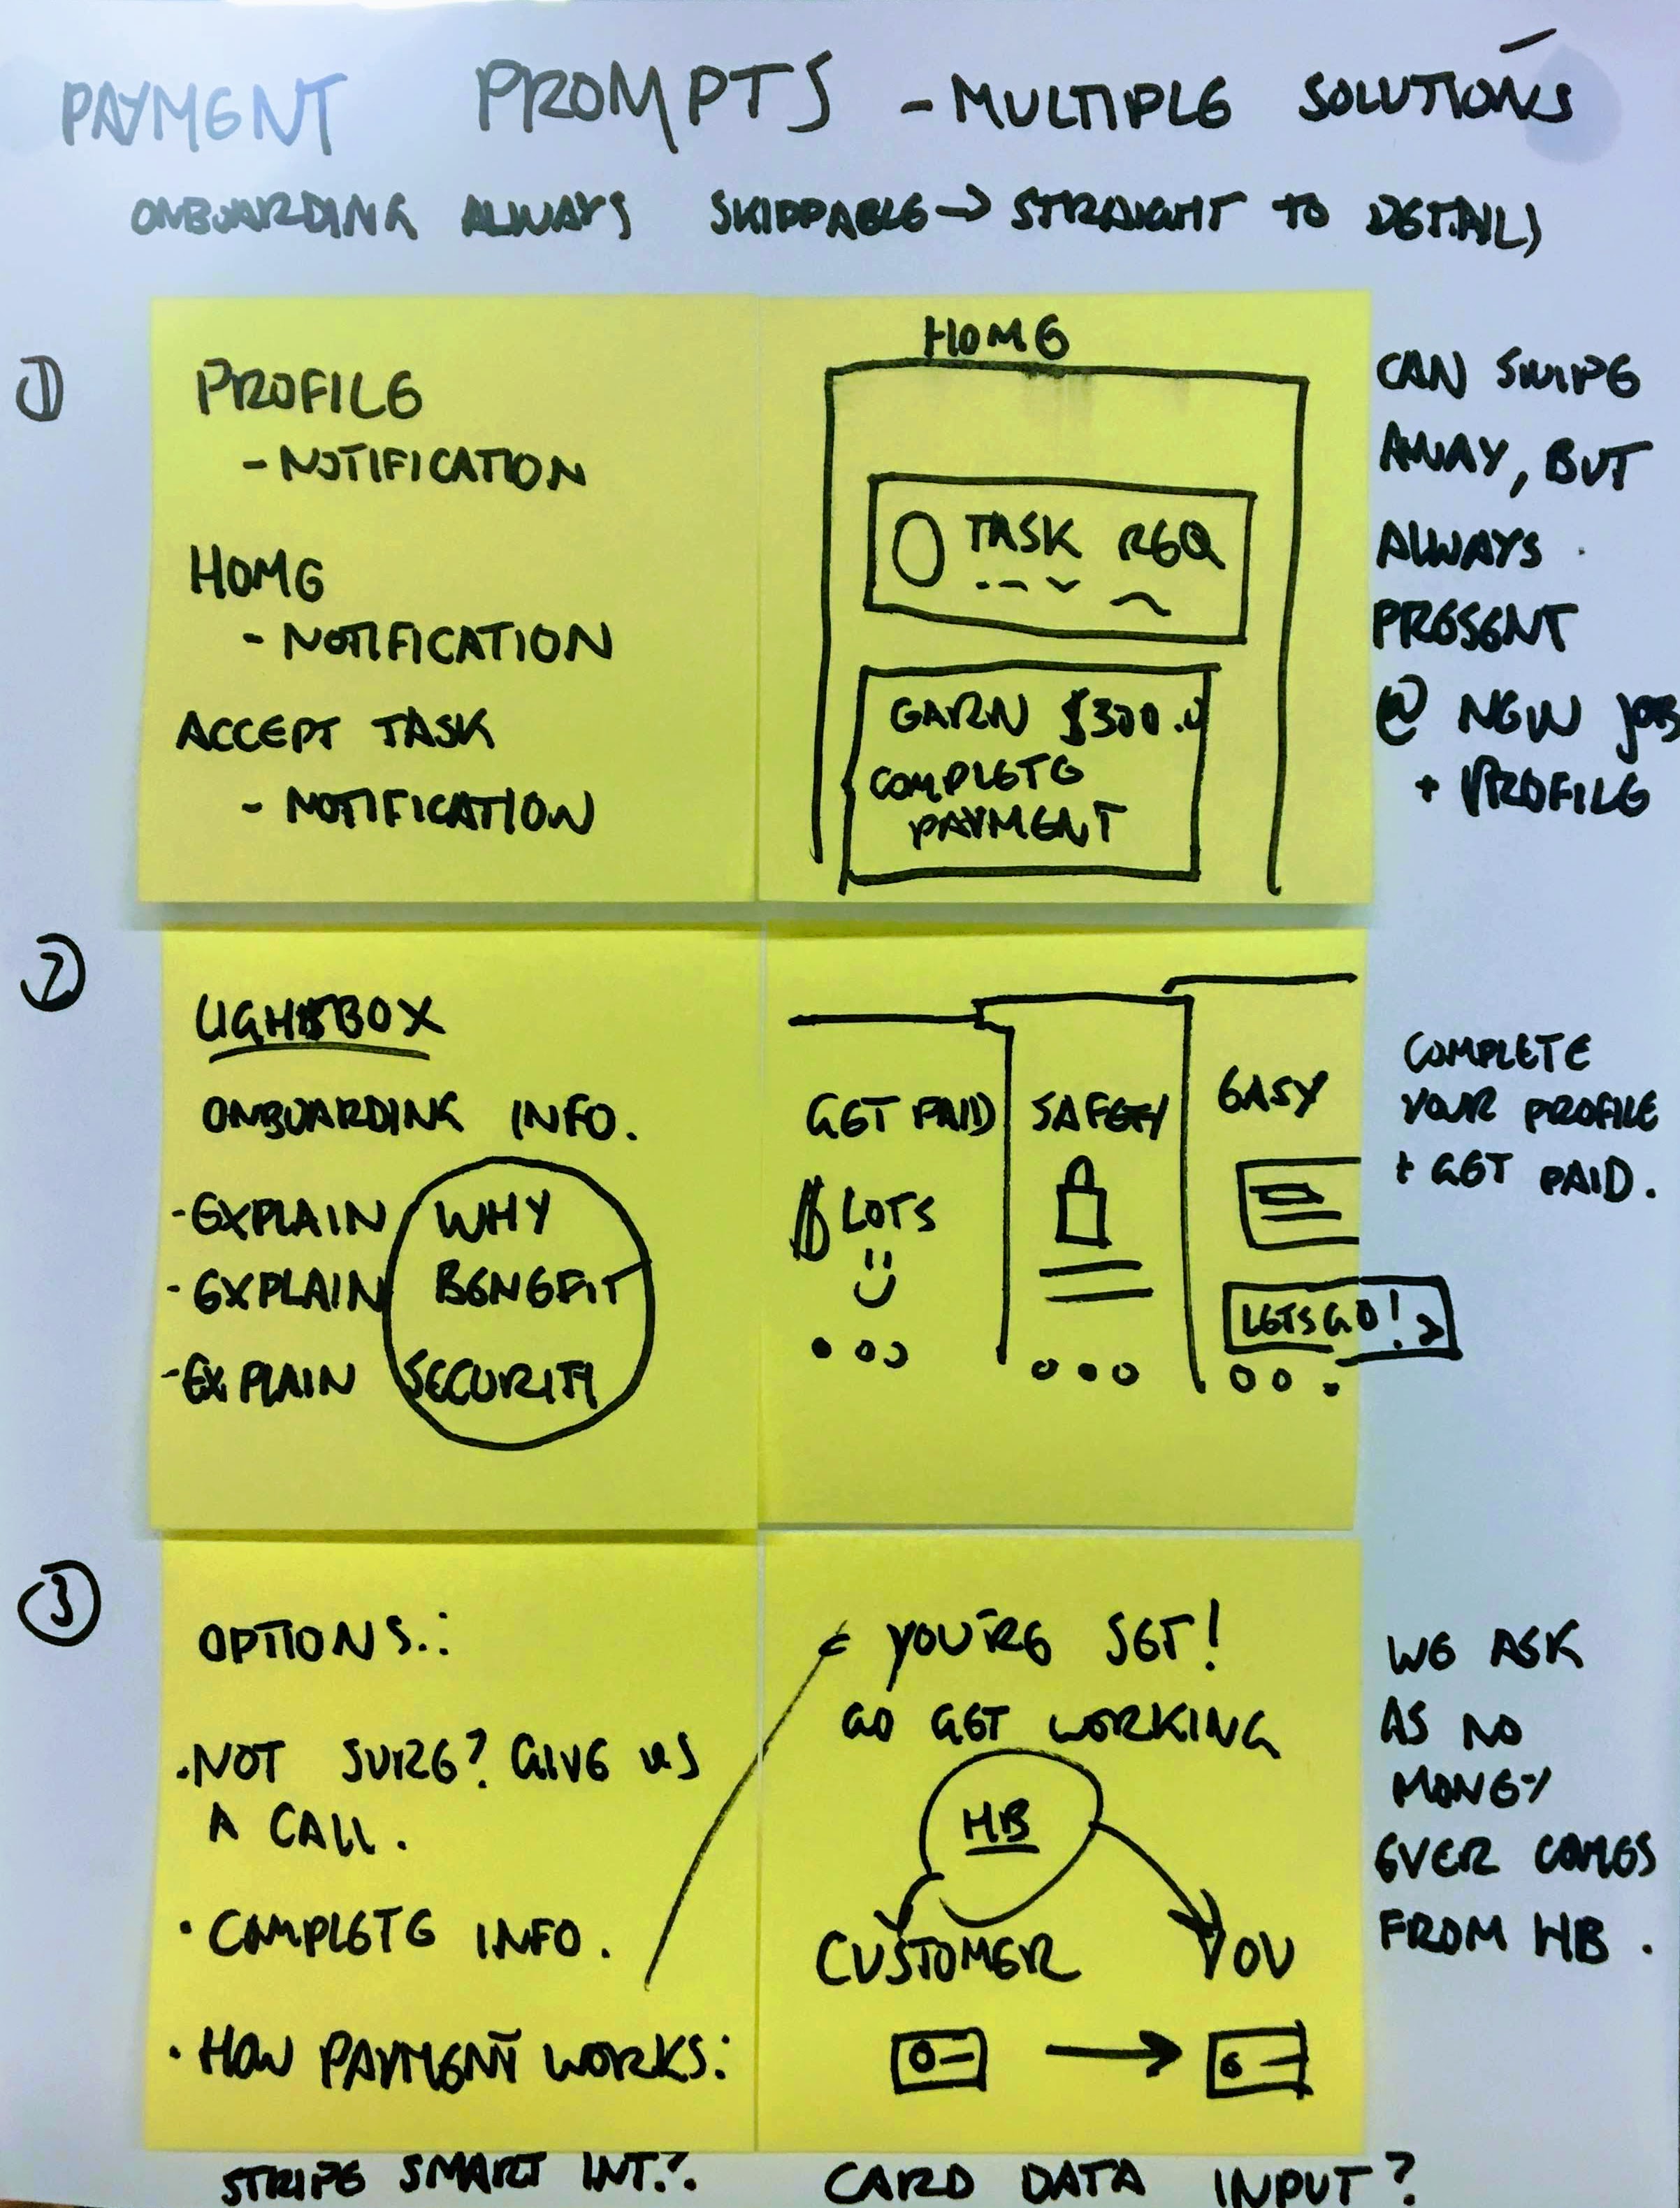 PAYMENT PROMPTS - MULTIPLE SOLUTIONS
ONBOARDING ALWAYS SKIPPABLE → STRAIGHT TO DETAIL)
1
PROFILE
- NOTIFICATION
HOME
- NOTIFICATION
ACCEPT TASK
- NOTIFICATION
HOME
TASK REQ
EARN $300.0
COMPLETE
PAYMENT
CAN SWIPE
AWAY, BUT
ALWAYS
PRESENT
@ NEW JOB
+ PROFILE
2
LIGHTBOX
ONBOARDING INFO.
- EXPLAIN WHY
- EXPLAIN BENEFIT
- EXPLAIN SECURITY
GET PAID
$ LOTS
SAFETY
EASY
LETS GO! >
COMPLETE
YOUR PROFILE
+ GET PAID.
3
OPTIONS.:
. NOT SURE? GIVE US
A CALL.
· COMPLETE INFO.
· HOW PAYMENT WORKS:
YOU'RE SET!
GO GET WORKING
HB
CUSTOMER YOU
WE ASK
AS NO
MONEY
EVER COMES
FROM HB.
STRIPE SMART INT?.
CARD DATA INPUT?